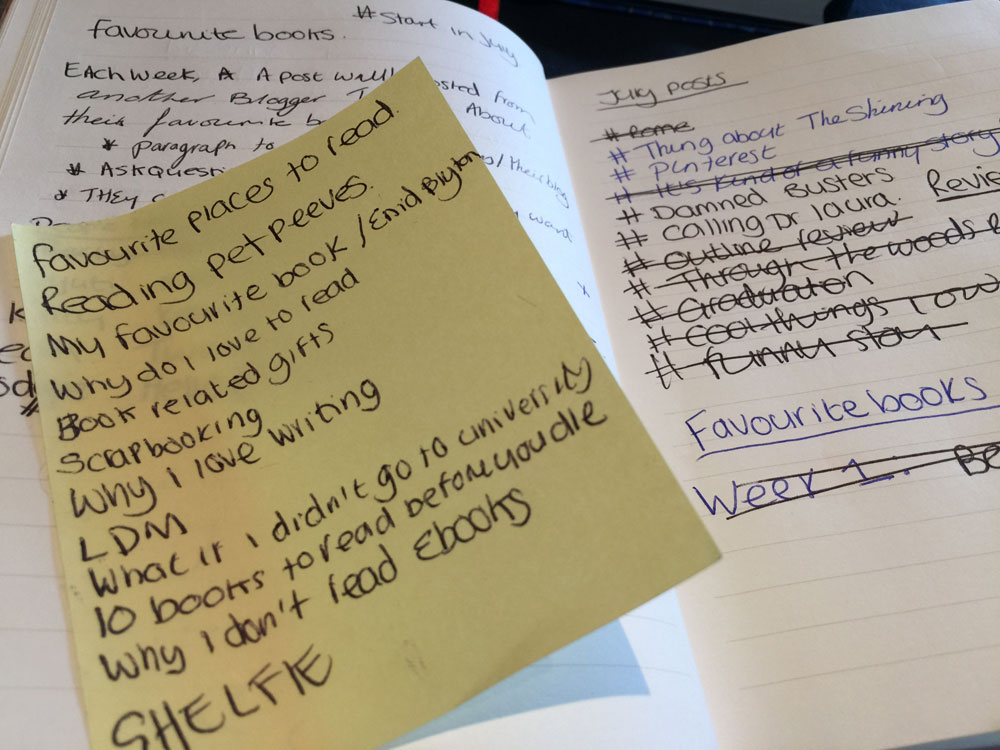 Favourite books.
# Start in July
EACH week, A A post will posted from
another Blogger About
their favourite
* paragraph to
* ASK Quest
* THEY
Favourite places to read.
Reading pet peeves.
My favourite book / Enid Blyton
Why do I love to read
Book related gifts
Scrapbooking
Why I love writing
LDM
What if I didn't go to university
10 books to read before you die
Why I don't read Ebooks
SHELFIE
July posts
# Rome
# Thing about The Shining
# Pinterest
# It's kind of a funny story
# Damned Busters
# Calling Dr Laura.
Revis
# Outline review
# Through the woods
# Graduation
# Cool things I
# funny story
Favourite books
Week 1: Be